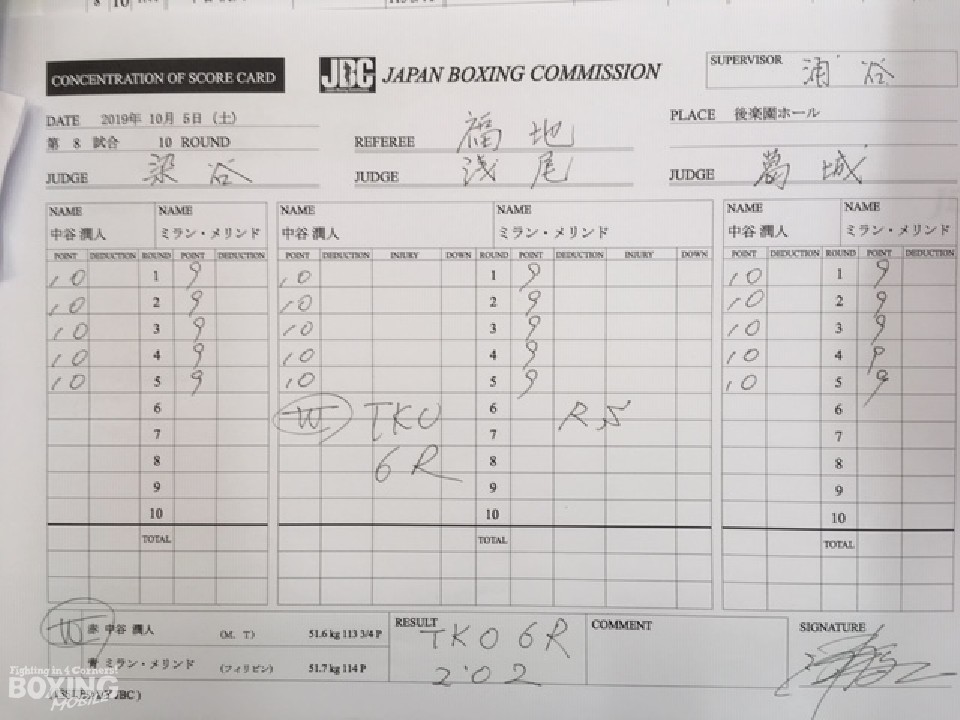 8 10
CONCENTRATION OF SCORE CARD
JBC JAPAN BOXING COMMISSION
SUPERVISOR 浦谷
DATE 2019年 10月 5日 (土)
PLACE 後楽園ホール
第 8 試合 10 ROUND
REFEREE 福地
JUDGE 染谷
JUDGE 浅尾
JUDGE 葛城
NAME NAME NAME NAME NAME NAME
中谷 潤人 ミラン・メリンド 中谷 潤人 ミラン・メリンド 中谷 潤人 ミラン・メリンド
POINT DEDUCTION ROUND POINT DEDUCTION POINT DEDUCTION INJURY DOWN ROUND POINT DEDUCTION INJURY DOWN POINT DEDUCTION ROUND POINT DEDUCTION
10 1 9 10 1 9 10 1 9
10 2 9 10 2 9 10 2 9
10 3 9 10 3 9 10 3 9
10 4 9 10 4 9 10 4 9
10 5 9 10 5 9 10 5 9
6 W TKO 6 6
7 7 7
8 6R 8 8
9 9 9
10 10 10
TOTAL TOTAL TOTAL
W 赤 中谷 潤人 (M. T) 51.6 kg 113 3/4 P
青 ミラン・メリンド (フィリピン) 51.7 kg 114 P
RESULT TKO 6R
2'02
COMMENT
SIGNATURE
Fighting in 4 Corners!
BOXING
MOBILE
JBC)